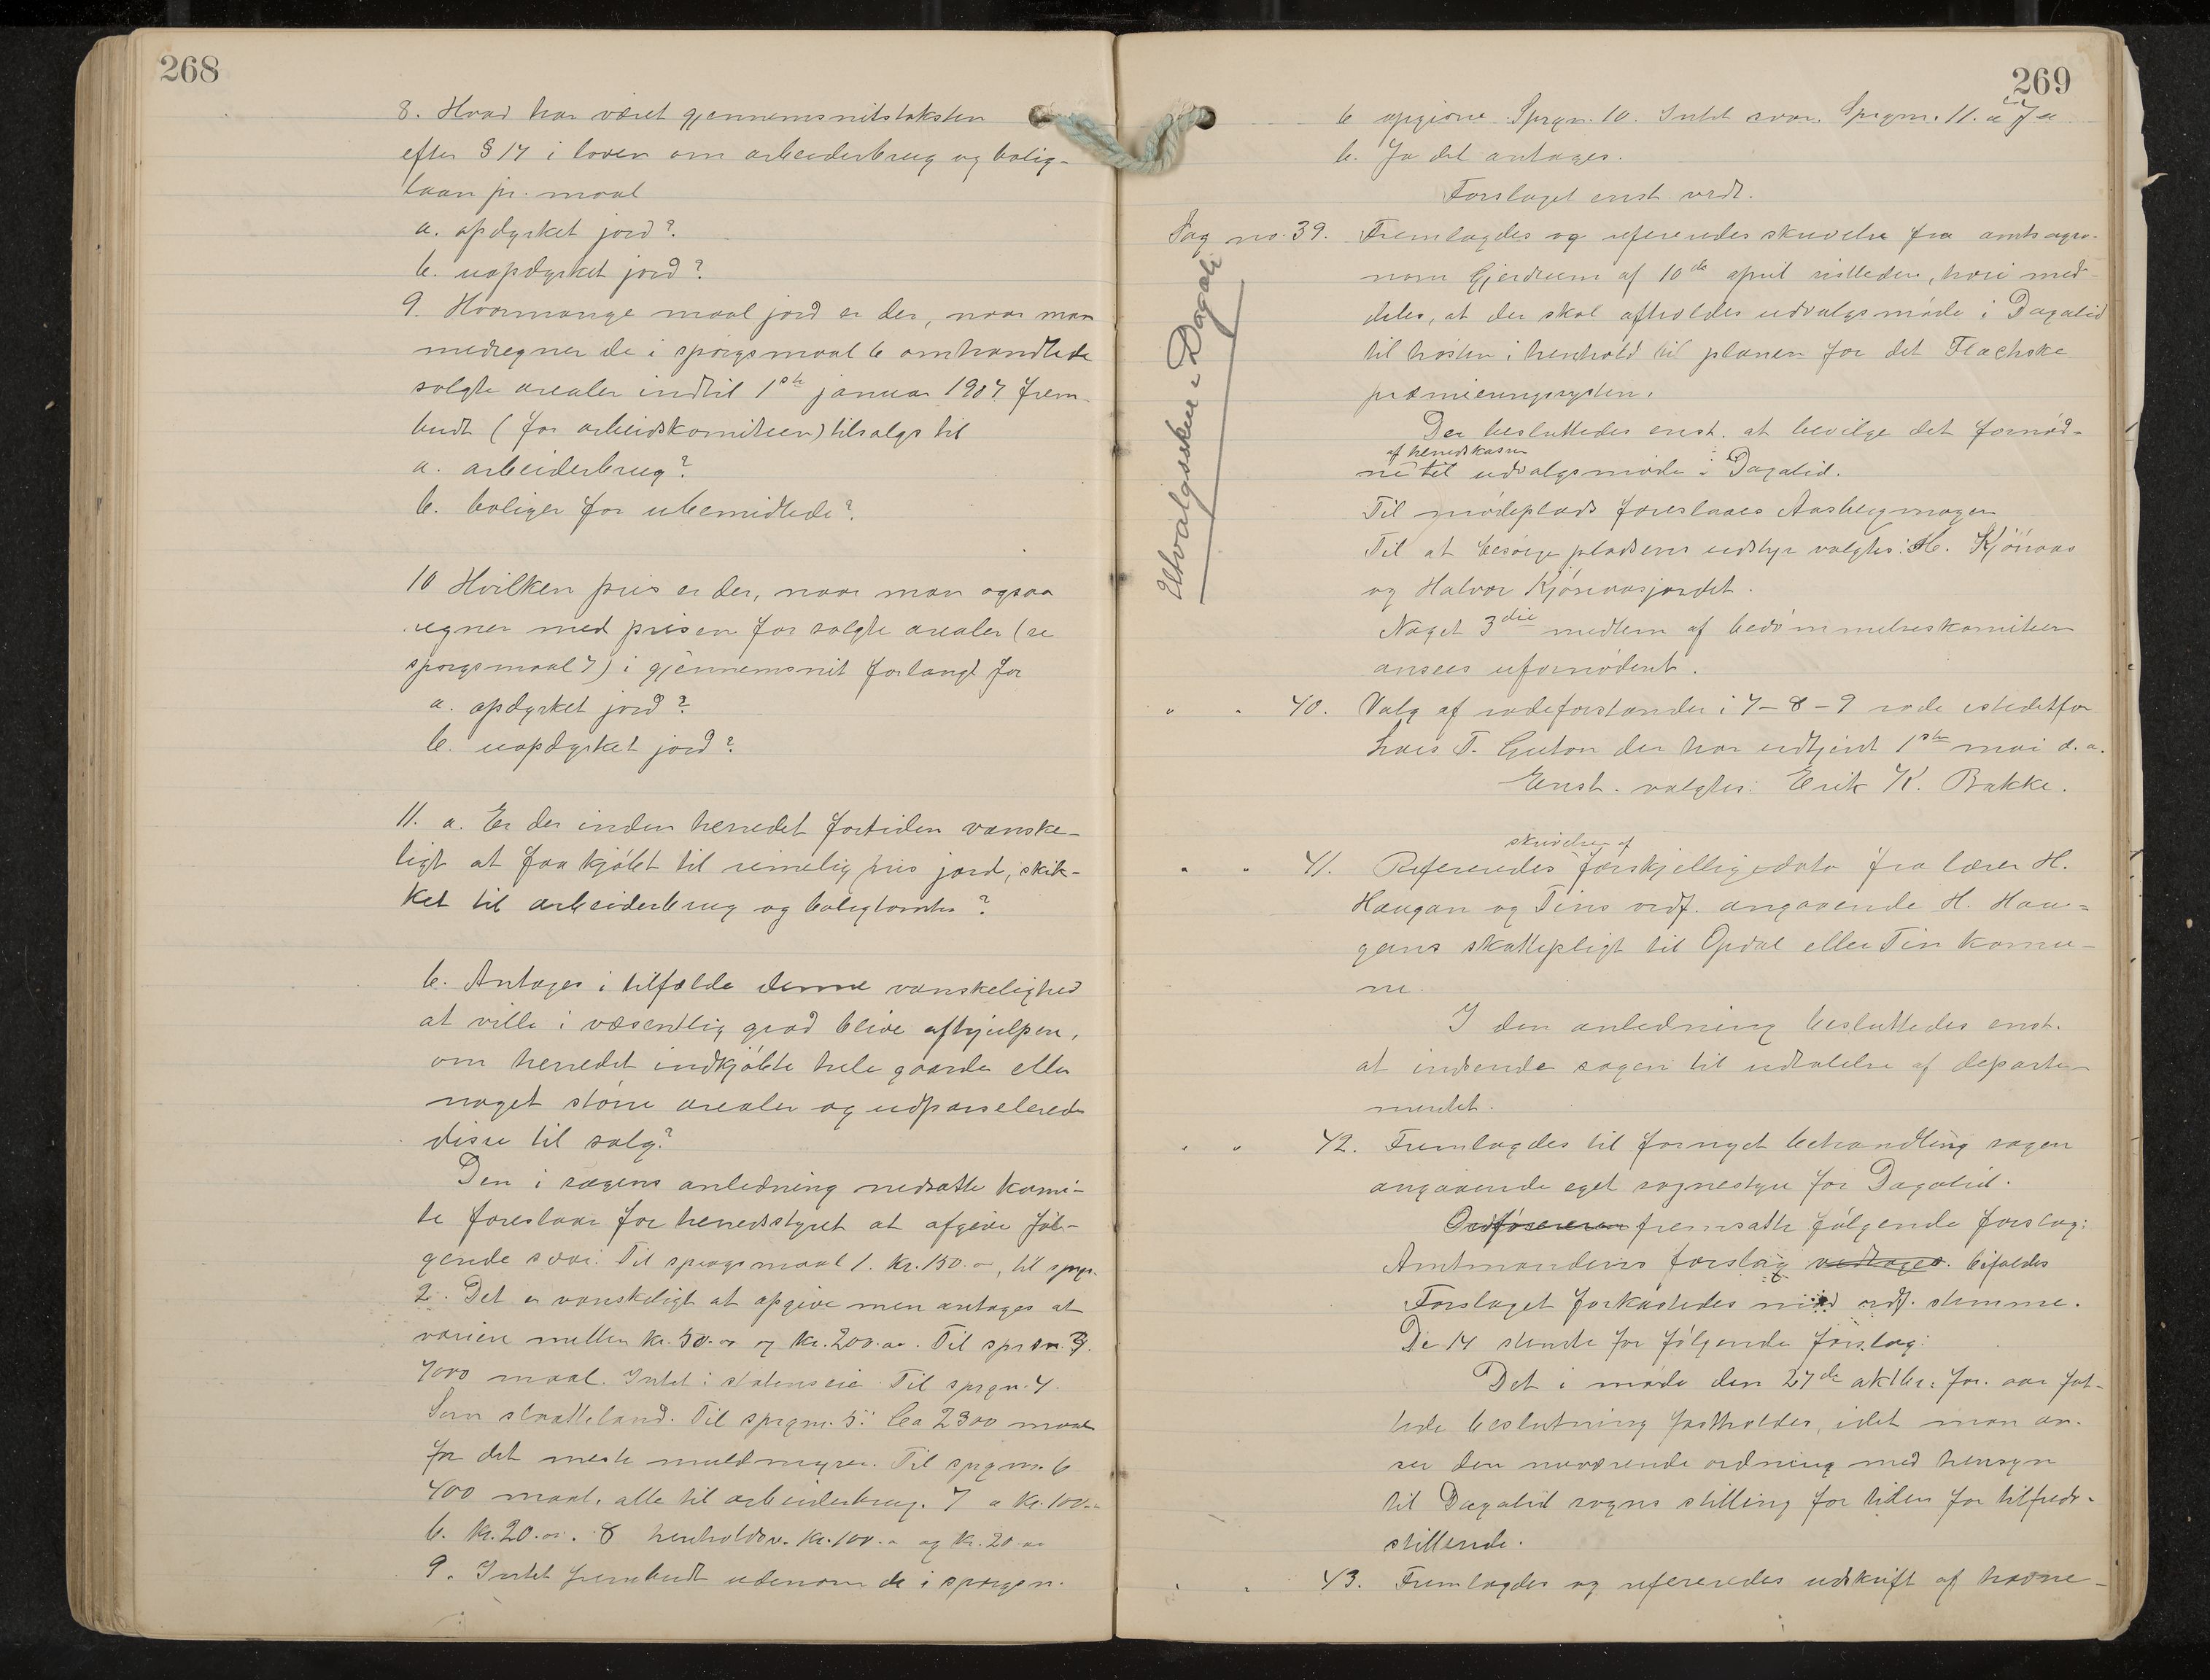 268
8. Hvad har været gjennemsnitstaksten
efter § 14 i loven om arbeiderbrug og bolig-
laan pr. maal
a. opdyrket jord?
b. uopdyrket jord?
9. Hvormange maal jord er der, naar man
medregner de i spørgsmaal 6 omhandlede
solgte arealer indtil 1ste januar 1907 frem-
budt (for arbeidskomiteen) tilsalgs til
a. arbeiderbrug?
b. boliger for ubemidlede?
10 Hvilken pris er der, naar man ogsaa
regner med prisen for solgte arealer (se
spørgsmaal 7) i gjennemsnit forlangt for
a. opdyrket jord?
b. uopdyrket jord?
11. a. Er der inden herredet fortiden vanske-
ligt at faa kjøbt til rimelig pris jord, skik-
ket til arbeiderbrug og boligtomter?
b. Antages i tilfælde denne vanskelighed
at ville i væsentlig grad blive afhjulpen,
om herredet indkjøbte hele gaarde eller
noget større arealer og udparselerede
disse til salg?
Den i sagens anledning nedsatte komi-
te foreslaar for herredsstyret at afgive føl-
gende svar: Til spørgsmaal 1. kr. 150.00, til spgs.
2. Det er vanskeligt at opgive men antages at
variere mellem kr. 50.00 og kr. 200.00. Til sprsm. 3.
7000 maal. Intet i statens eie Til sprgm. 4.
Som slaatteland. Til sprgm. 5: Ca 2300 maal
for det meste muldmyrer. Til sprgm. 6
400 maal, alle til arbeiderbrug. 7 a kr. 100.00
b. kr. 20.00. 8 henholdsv. kr. 100.00 og kr. 20.00
9. Intet frembudt udenom de i spørgsm.
269
6 opgivne. Sprgm. 10. Intet svar. Sprgm. 11. a Ja
b. Ja det antages.
Forslaget enst. vedt.
Sag no. 39. Fremlagdes og refereredes skrivelse fra amtsagro-
nom Gjerdrum af 10de april sidstleden, hvori med-
deles, at der skal afholdes udvalgsmøde i Dagalid
til høsten i henhold til planen for det Flachske
præmieringssystem.
Utvalgssken i Dagali
Der besluttedes enst. at bevilge det fornød-
af herredskassen
ne til udvalgsmøde i Dagalid.
Til mødeplads foreslaaes Aasbergmogen
Til at besørge pladsens udstyr valgtes: H. Kjønaas
og Halvor Kjønaasjordet.
Noget 3die medlem af bedømmelseskomiteen
ansees ufornødent.
" " 40. Valg af rodeforstander i 7 - 8 - 9 rode istedetfor
Lars T. Guton der har udtjent 1ste mai d. a.
Enst. valgtes: Erik K. Bakke.
skrivelser af
" " 41. Refereredes forskjellige dato fra lærer H.
Haugan og Tins ordf. angaaende H. Hau=
gans skattepligt til Opdal eller Tin komu-
ne.
I den anledning besluttedes enst.
at indsende sagen til udtalelse af departe-
mentet.
" " 42. Fremlagdes til fornyet behandling sagen
angaaende eget sognestyre for Dagalid.
Ordføreren fremsatte følgende forslag:
Amtmandens forslag vedtages. bifaldes
Forslaget forkastedes mod ordf. stemme.
De 14 stemte for følgende forslag:
Det i møde den 27de oktbr. for. aar fat-
tede beslutning fastholdes, idet man an-
ser den nuværende ordning med hensyn
til Dagalid sogns stilling for tiden for tilfreds-
stillende.
" " 43. Fremlagdes og refereredes udskrift af havne-